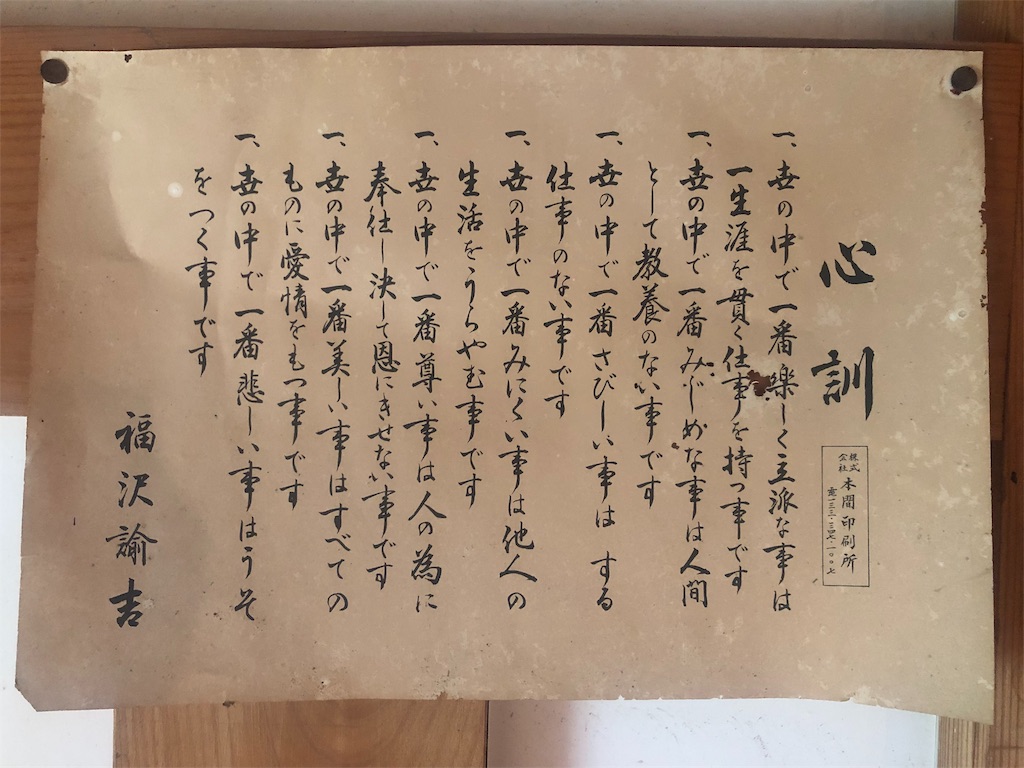 心訓
株式会社 本間印刷所
一、世の中で一番楽しく立派な事は
一生涯を貫く仕事を持つ事です
一、世の中で一番みじめな事は人間
として教養のない事です
一、世の中で一番さびしい事は する
仕事のない事です
一、世の中で一番みにくい事は他人の
生活をうらやむ事です
一、世の中で一番尊い事は人の為に
奉仕し決して恩にきせない事です
一、世の中で一番美しい事はすべての
ものに愛情をもつ事です
一、世の中で一番悲しい事はうそ
をつく事です
福沢諭吉